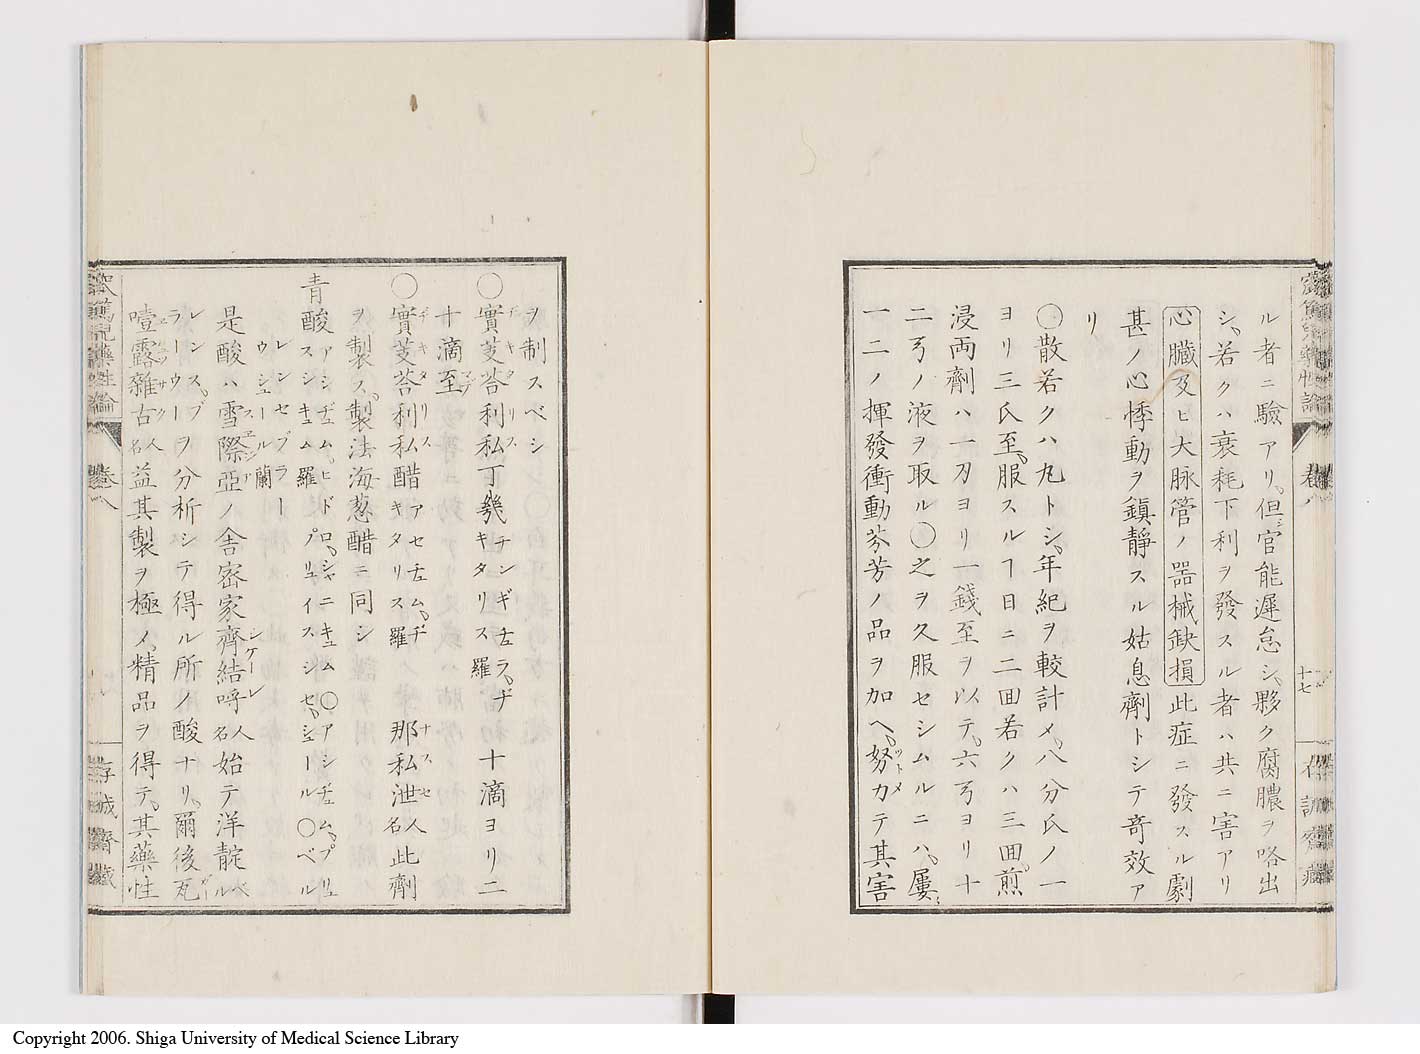 ル者ニ驗アリ但シ官能遲怠シ夥ク腐膿ヲ咯出
シ若クハ衰耗下利ヲ發スル者ハ共ニ害アリ
心臓及ヒ大脉管ノ器械缺損此症ニ發スル劇
甚ノ心悸動ヲ鎮靜スル姑息劑トシテ奇效ア
リ
〇散若クハ丸トシ年紀ヲ較計メ八分氏ノ一
ヨリ三氏至服スルヿ日ニ二囬若クハ三囬煎
浸両劑ハ一刃ヨリ一錢至ヲ以テ六弓ヨリ十
二弓ノ液ヲ取ル〇之ヲ久服セシムルニハ屢
一二ノ揮發衝動芬芳ノ品ヲ加ヘ努カテ其害
十七
ヲ制スベシ
〇實芰荅利私丁幾 チンギキュラヂキタリス羅 十滴ヨリ二
十滴至
〇實芰荅利私醋 アセキュムヂキタリス羅 那私泄人名此劑
ヲ製ス製法海葱醋ニ同シ
青酸 アシヂュムヒドロシャニキュム〇アシヂュムプリュスシキュム羅 プリュイスシセシュール〇ベルレンセブラーウシュール蘭
是酸ハ雪際亞ノ舎密家齊結呼人名始テ洋靛ベルレンスブラーウーヲ分析シテ得ル所ノ酸ナリ爾後瓦
噎露雜古人名益其製ヲ極メ精品ヲ得テ其藥性
卷八
Copyright 2006. Shiga University of Medical Science Library